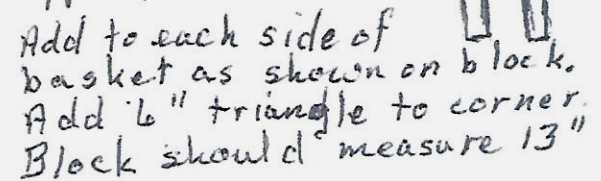 Add to each side of
basket as shown on block.
Add 6" triangle to corner.
Block should measure 13"